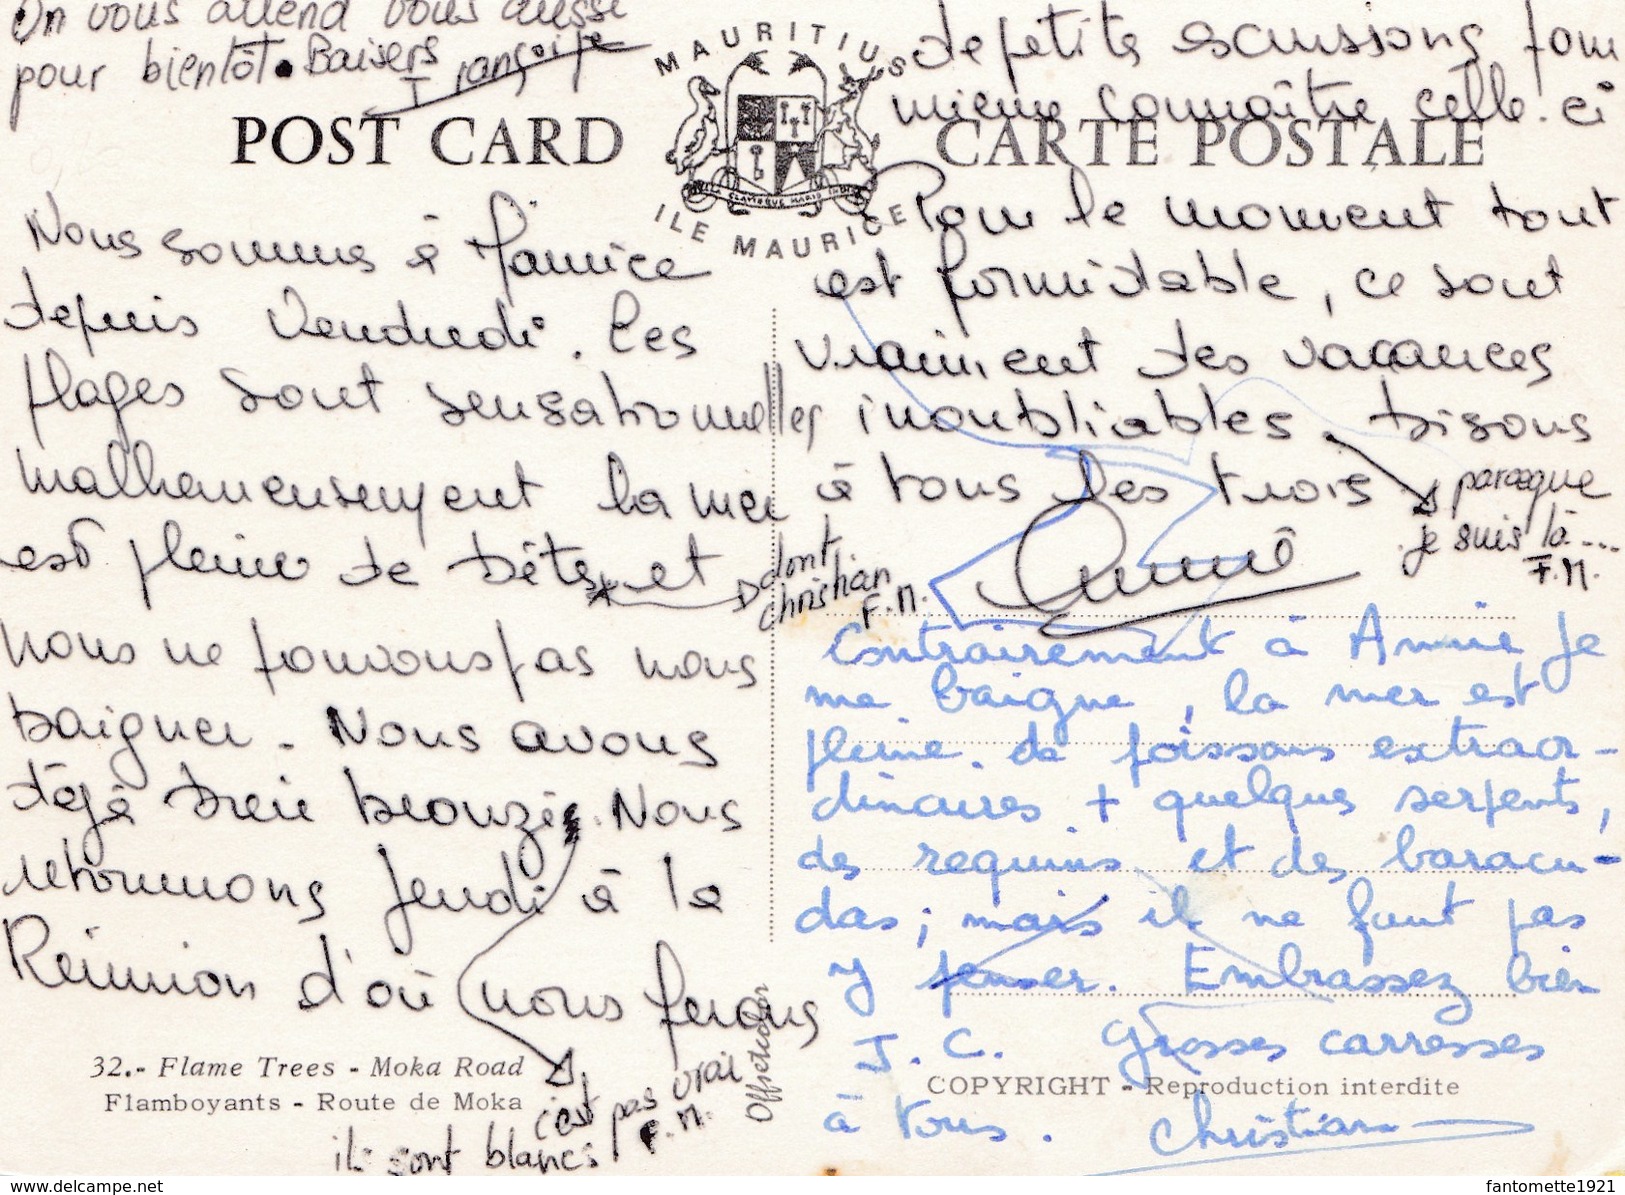 On vous attend vous aussi
pour bientôt. Baisers
Françoise
MAURITIUS
POST CARD
CARTE POSTALE
ILE MAURICE
Nous sommes à Maurice
depuis Vendredi. Les
plages sont sensationnelles
malheureusement la mer
est pleine de bêtes et
dont
christian
F.M.
nous ne pouvons pas nous
baigner. Nous avons
déjà bien bronzés. Nous
retournons Jeudi à la
Réunion d'où nous ferons
c'est pas vrai
F.M.
ils sont blancs
32.- Flame Trees - Moka Road
Flamboyants - Route de Moka
Offsetcolor
de petites excursions pour
mieux connaître celle-ci
Pour le moment tout
est formidable, ce sont
vraiment des vacances
inoubliables. Bisous
à tous les trois
parceque
je suis là...
F.M.
Annie
Contrairement à Annie je
me baigne, la mer est
pleine de poissons extraor-
dinaires + quelques serpents,
des requins et des baracu-
das; mais il ne faut pas
y penser. Embrassez bien
J.C. Grosses caresses
COPYRIGHT - Reproduction interdite
à tous. Christian
www.delcampe.net
fantomette1921